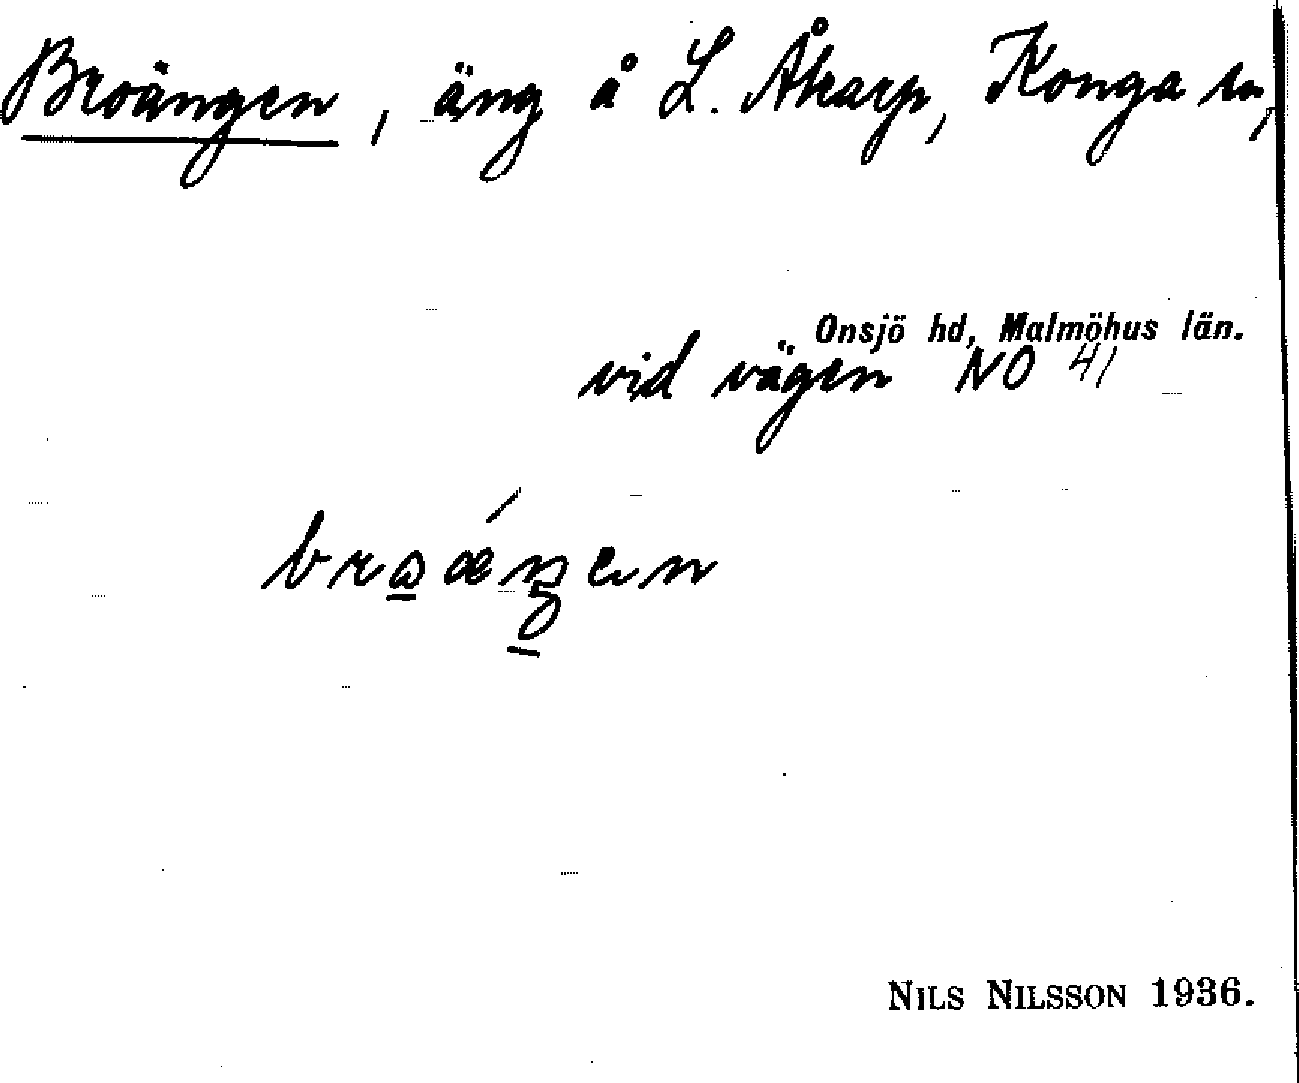 Broängen, äng å L. Åkarp, Konga sn,
Onsjö hd, Malmöhus län.
vid vägen NO 41
NILS NILSSON 1936.